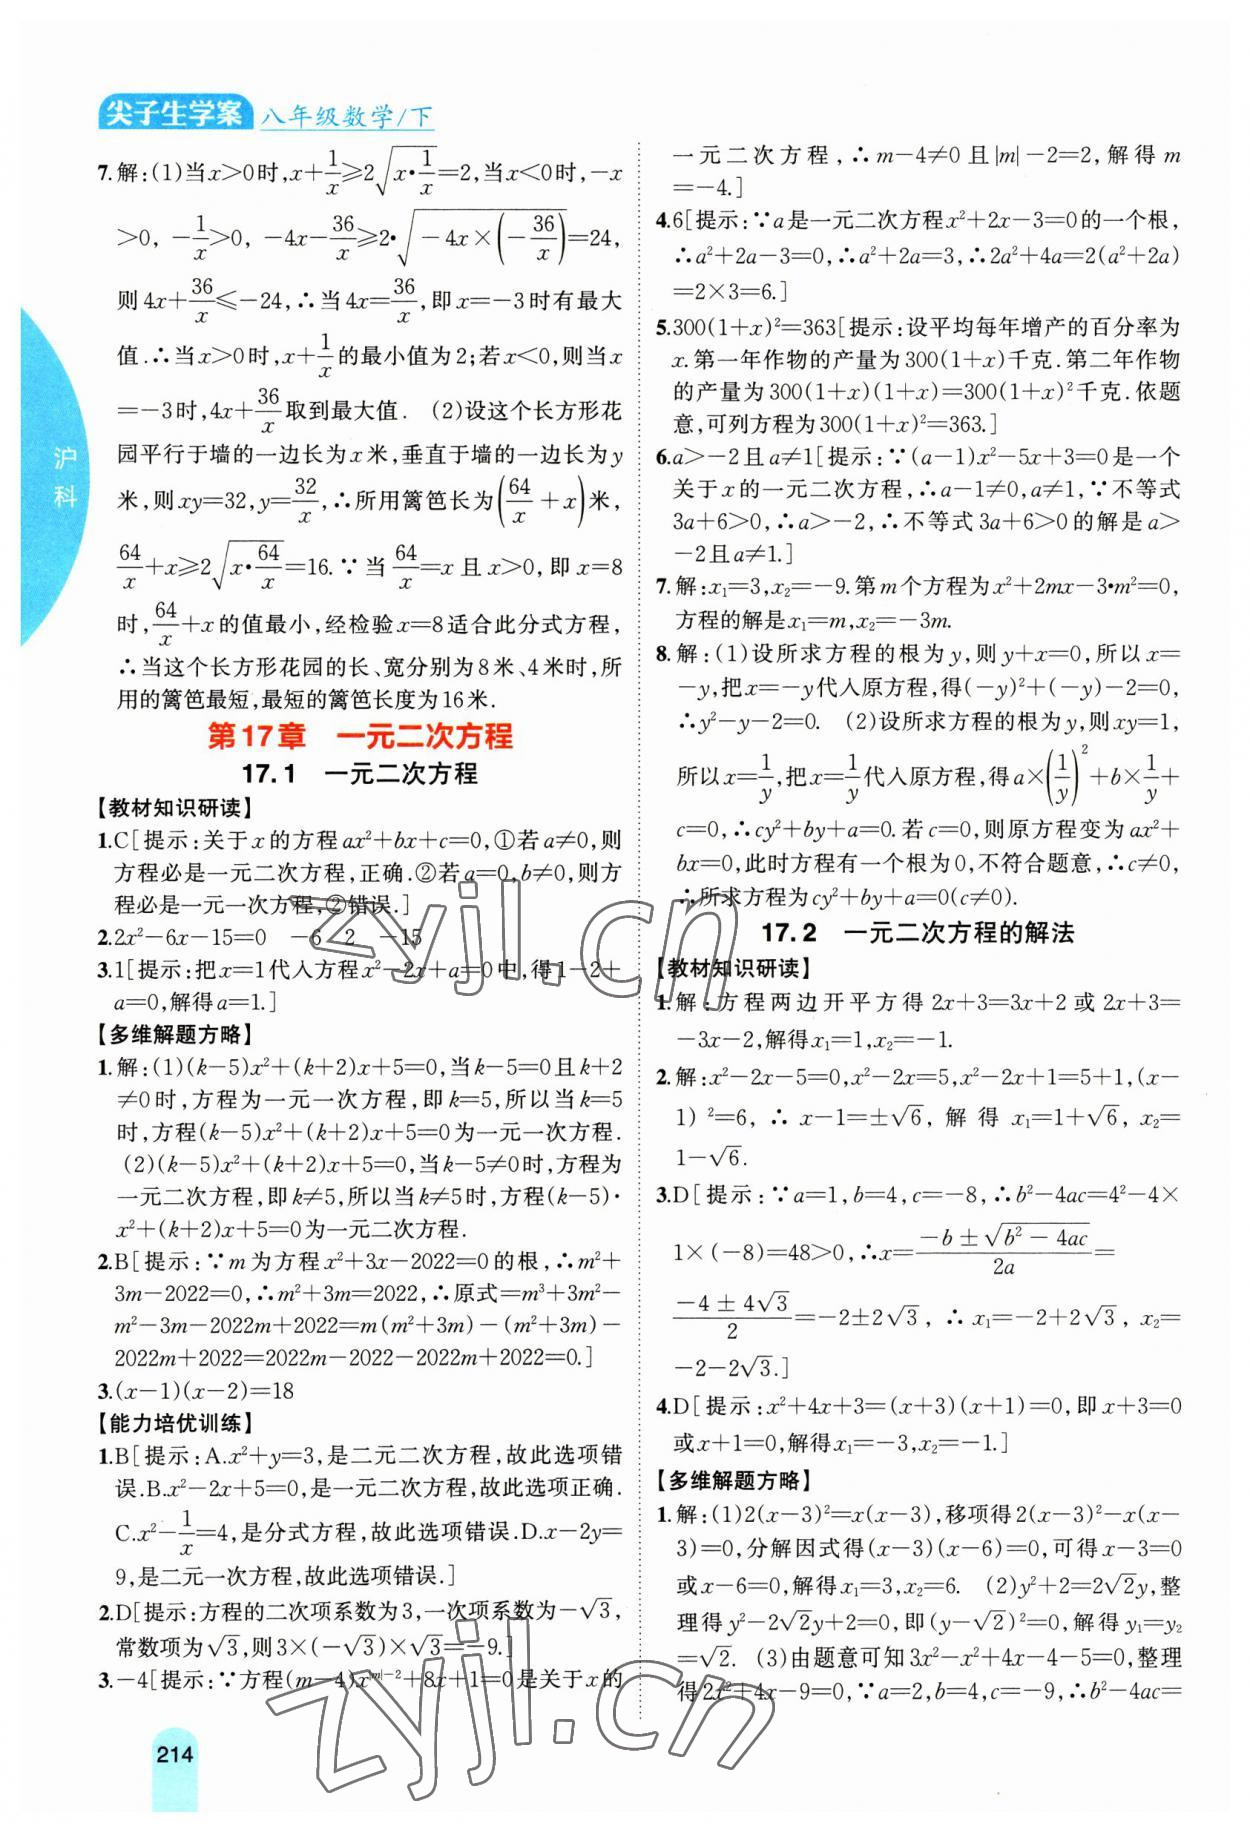 尖子生学案 八年级数学/下
7.解:(1)当x>0时,x+1/x≥2√(x·1/x)=2,当x<0时,-x
>0, -1/x>0, -4x-36/x≥2·√(-4x×(-36/x))=24,
则4x+36/x≤-24,∴当4x=36/x,即x=-3时有最大
值.∴当x>0时,x+1/x的最小值为2;若x<0,则当x
=-3时,4x+36/x取到最大值. (2)设这个长方形花
园平行于墙的一边长为x米,垂直于墙的一边长为y
米,则xy=32,y=32/x,∴所用篱笆长为(64/x+x)米,
64/x+x≥2√(x·64/x)=16.∵当64/x=x且x>0,即x=8
时,64/x+x的值最小,经检验x=8适合此分式方程,
∴当这个长方形花园的长、宽分别为8米、4米时,所
用的篱笆最短,最短的篱笆长度为16米.
第17章 一元二次方程
17.1 一元二次方程
【教材知识研读】
1.C[提示:关于x的方程ax²+bx+c=0,①若a≠0,则
方程必是一元二次方程,正确.②若a=0,b≠0,则方
程必是一元一次方程,②错误.]
2.2x²-6x-15=0 -6 2 -15
3.1[提示:把x=1代入方程x²-2x+a=0中,得1-2+
a=0,解得a=1.]
【多维解题方略】
1.解:(1)(k-5)x²+(k+2)x+5=0,当k-5=0且k+2
≠0时,方程为一元一次方程,即k=5,所以当k=5
时,方程(k-5)x²+(k+2)x+5=0为一元一次方程.
(2)(k-5)x²+(k+2)x+5=0,当k-5≠0时,方程为
一元二次方程,即k≠5,所以当k≠5时,方程(k-5)·
x²+(k+2)x+5=0为一元二次方程.
2.B[提示:∵m为方程x²+3x-2022=0的根,∴m²+
3m-2022=0,∴m²+3m=2022,∴原式=m³+3m²-
m²-3m-2022m+2022=m(m²+3m)-(m²+3m)-
2022m+2022=2022m-2022-2022m+2022=0.]
3.(x-1)(x-2)=18
【能力培优训练】
1.B[提示:A.x²+y=3,是二元二次方程,故此选项错
误.B.x²-2x+5=0,是一元二次方程,故此选项正确.
C.x²-1/x=4,是分式方程,故此选项错误.D.x-2y=
9,是二元一次方程,故此选项错误.]
2.D[提示:方程的二次项系数为3,一次项系数为-√3,
常数项为√3,则3×(-√3)×√3=-9.]
3.-4[提示:∵方程(m-4)x^(|m|-2)+8x+1=0是关于x的
一元二次方程,∴m-4≠0且|m|-2=2,解得m
=-4.]
4.6[提示:∵a是一元二次方程x²+2x-3=0的一个根,
∴a²+2a-3=0,∴a²+2a=3,∴2a²+4a=2(a²+2a)
=2×3=6.]
5.300(1+x)²=363[提示:设平均每年增产的百分率为
x.第一年作物的产量为300(1+x)千克.第二年作物
的产量为300(1+x)(1+x)=300(1+x)²千克.依题
意,可列方程为300(1+x)²=363.]
6.a>-2且a≠1[提示:∵(a-1)x²-5x+3=0是一个
关于x的一元二次方程,∴a-1≠0,a≠1,∵不等式
3a+6>0,∴a>-2,∴不等式3a+6>0的解是a>
-2且a≠1.]
7.解:x₁=3,x₂=-9.第m个方程为x²+2mx-3·m²=0,
方程的解是x₁=m,x₂=-3m.
8.解:(1)设所求方程的根为y,则y+x=0,所以x=
-y,把x=-y代入原方程,得(-y)²+(-y)-2=0,
∴y²-y-2=0. (2)设所求方程的根为y,则xy=1,
所以x=1/y,把x=1/y代入原方程,得a×(1/y)²+b×1/y+
c=0,∴cy²+by+a=0.若c=0,则原方程变为ax²+
bx=0,此时方程有一个根为0,不符合题意,∴c≠0,
∴所求方程为cy²+by+a=0(c≠0).
17.2 一元二次方程的解法
【教材知识研读】
1.解:方程两边开平方得2x+3=3x+2或2x+3=
-3x-2,解得x₁=1,x₂=-1.
2.解:x²-2x-5=0,x²-2x=5,x²-2x+1=5+1,(x-
1)²=6,∴x-1=±√6,解得x₁=1+√6,x₂=
1-√6.
3.D[提示:∵a=1,b=4,c=-8,∴b²-4ac=4²-4×
1×(-8)=48>0,∴x=(-b±√(b²-4ac))/2a=
(-4±4√3)/2=-2±2√3,∴x₁=-2+2√3,x₂=
-2-2√3.]
4.D[提示:x²+4x+3=(x+3)(x+1)=0,即x+3=0
或x+1=0,解得x₁=-3,x₂=-1.]
【多维解题方略】
1.解:(1)2(x-3)²=x(x-3),移项得2(x-3)²-x(x-
3)=0,分解因式得(x-3)(x-6)=0,可得x-3=0
或x-6=0,解得x₁=3,x₂=6. (2)y²+2=2√2y,整
理得y²-2√2y+2=0,即(y-√2)²=0,解得y₁=y₂
=√2. (3)由题意可知3x²-x²+4x-4-5=0,整理
得2x²+4x-9=0,∵a=2,b=4,c=-9,∴b²-4ac=
沪科
214
zyjl.cn
zyjl.cn